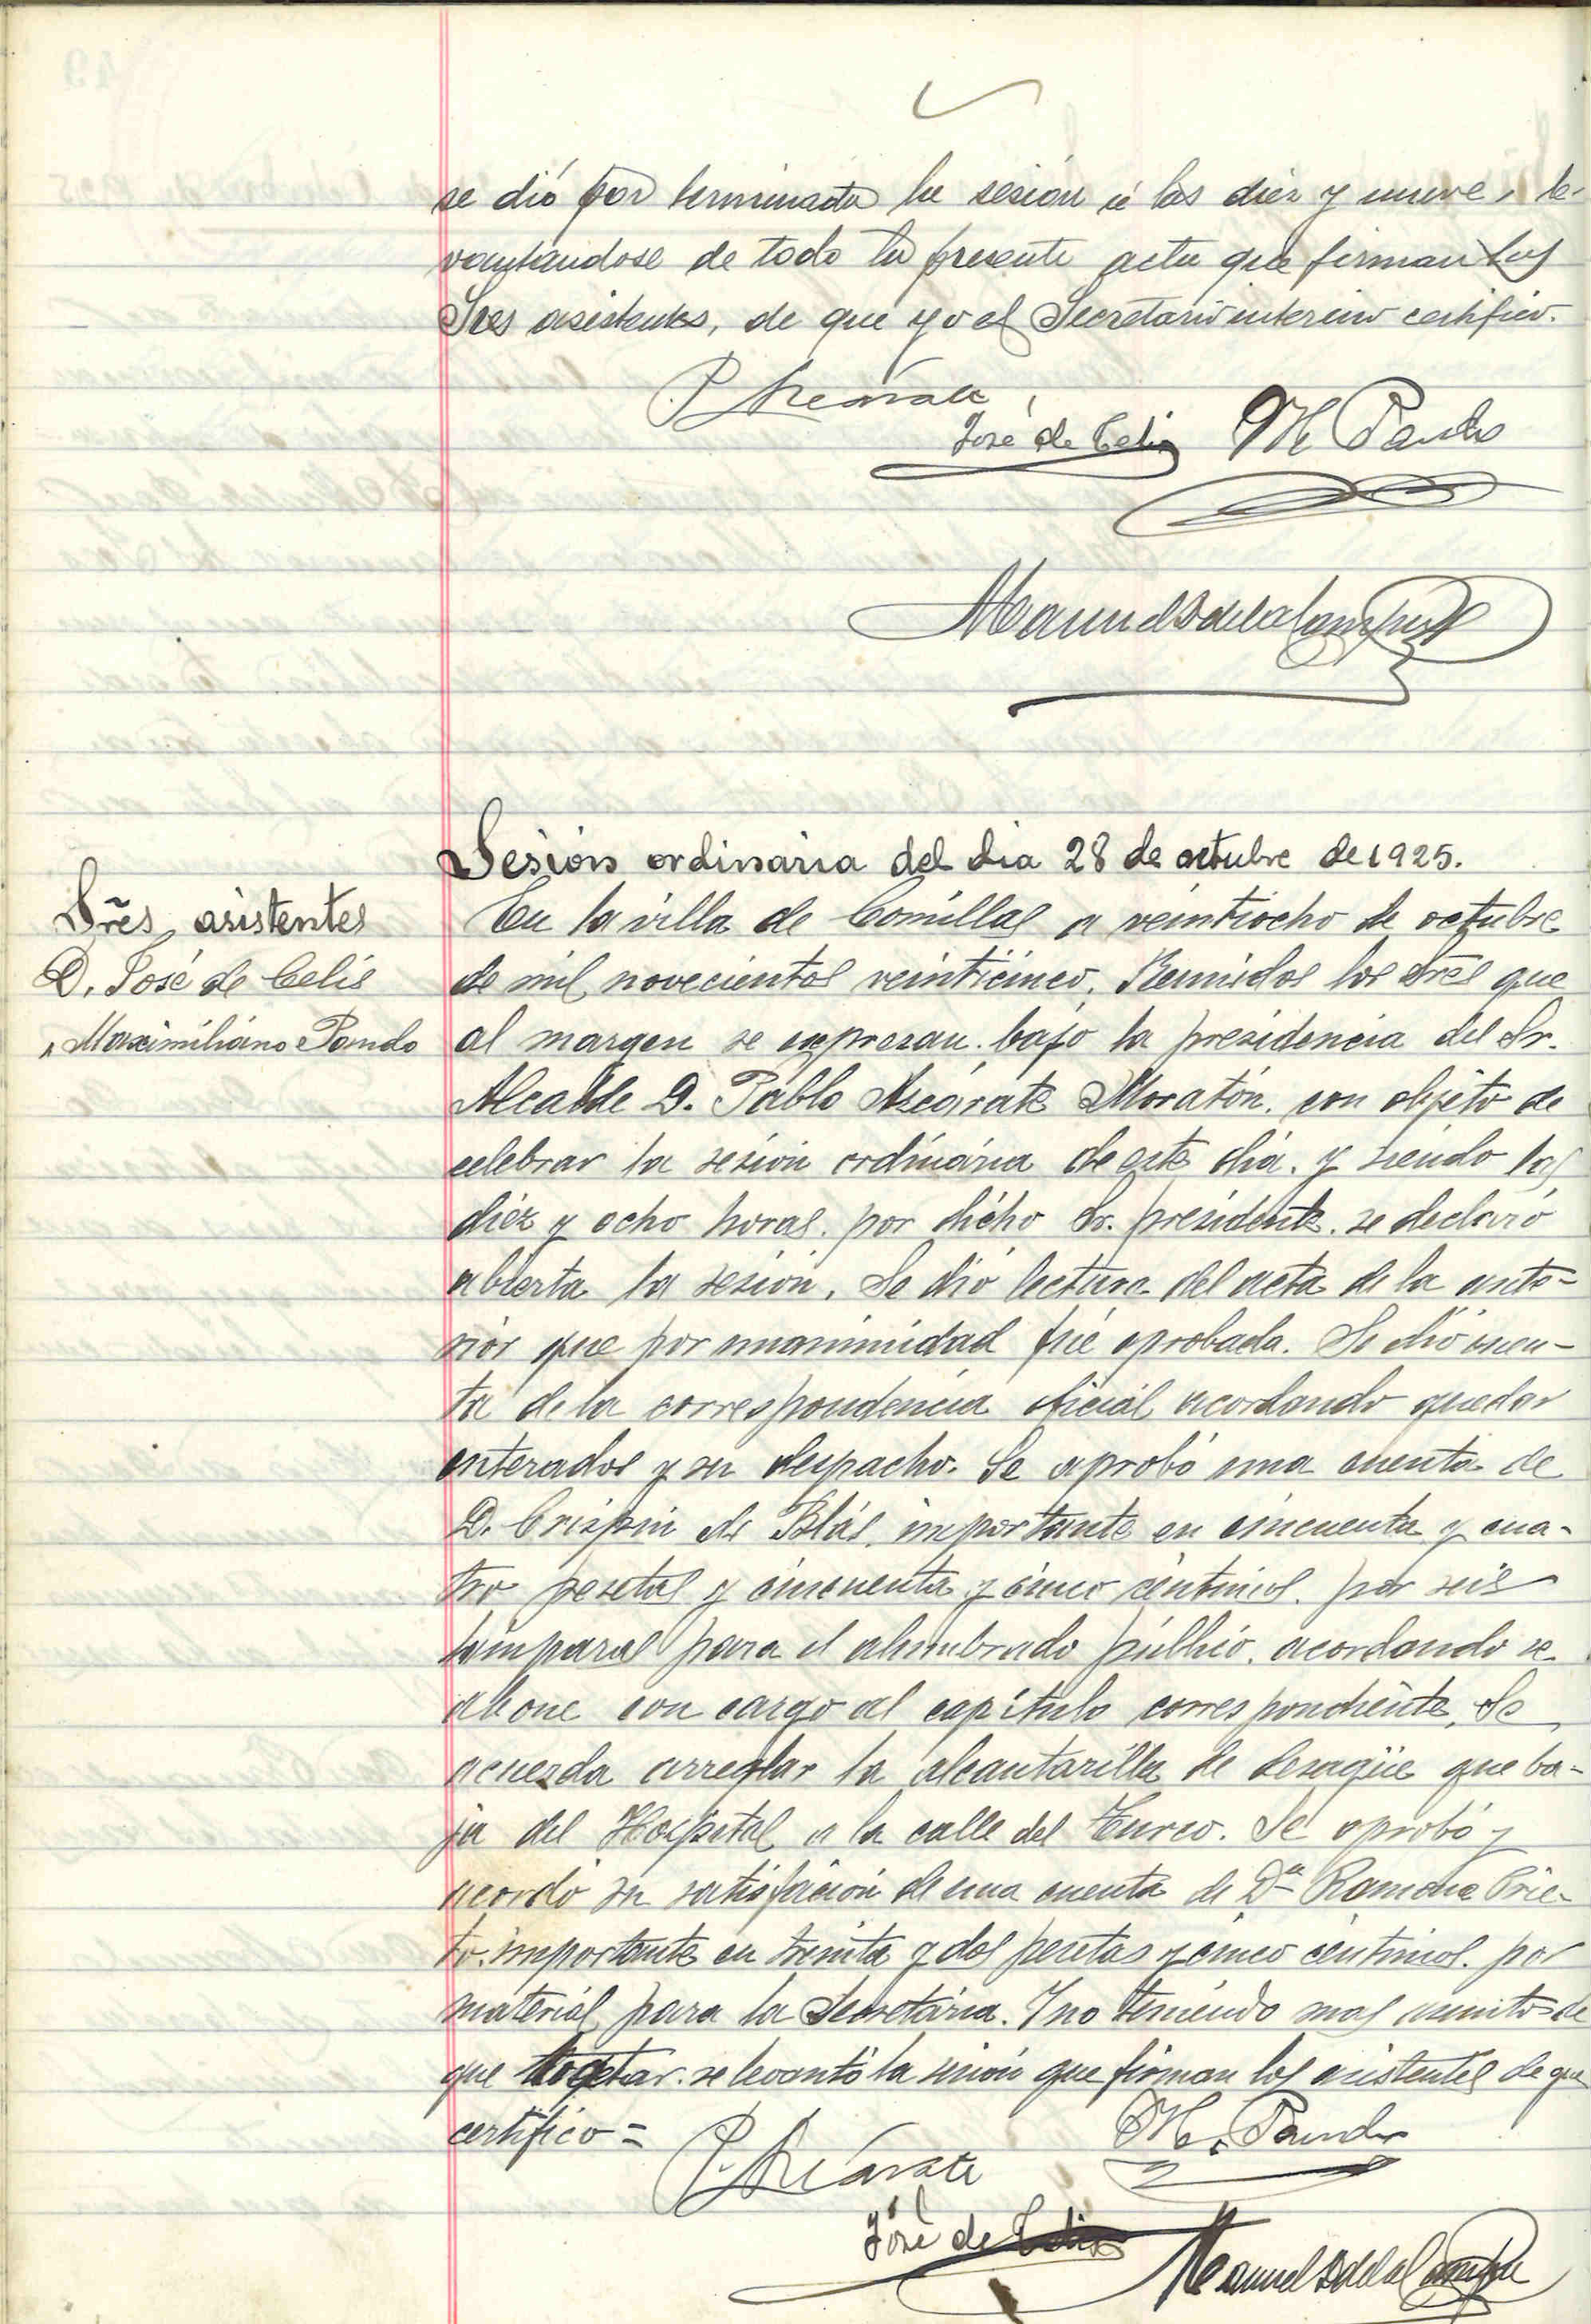 se dió por terminada la sesión a las diez y nueve, le-
vantandose de todo la presente acta que firman los
Sres asistentes, de que yo el Secretario interino certifico.
P. Azcárate
José de Celis M Pando
Manuel S de la Campa
Sesión ordinaria del dia 28 de octubre de 1925.
Sres, asistentes
D. José de Celis
" Maximiliano Pando
En la villa de Comillas a veintiocho de octubre
de mil novecientos veinticinco. Reunidos los Sres que
al margen se expresan. bajo la presidencia del Sr.
Alcalde D. Pablo Azcárate Moratón. con objeto de
celebrar la sesión ordinaria de este dia. y siendo las
diez y ocho horas. por dicho Sr. presidente. se declaró
abierta la sesión. Se dió lectura del acta de la ante-
rior que por unanimidad fué aprobada. Se dió cuen-
ta de la correspondencia oficial acordando quedar
enterados y su despacho. Se aprobó una cuenta de
D. Crispin de Blás. importante en cincuenta y cua-
tro pesetas y cincuenta y cinco céntimos. por seis
lámparas para el alumbrado público. acordando se
abone con cargo al capítulo correspondiente. Se
acuerda arreglar la alcantarilla de desagüe que ba-
ja del Hospital a la calle del Turco. Se aprobó y
acordó su satisfación de una cuenta de Dª Ramona Prie-
to. importante en treinta y dos pesetas y cinco céntimos. por
material para la Secretaria. Y no teniendo mas asuntos de
que tratar. se levantó la sesión que firman los asistentes de que
certifico =
P. Azcárate M. Pando
José de Celis Manuel S de la Campa